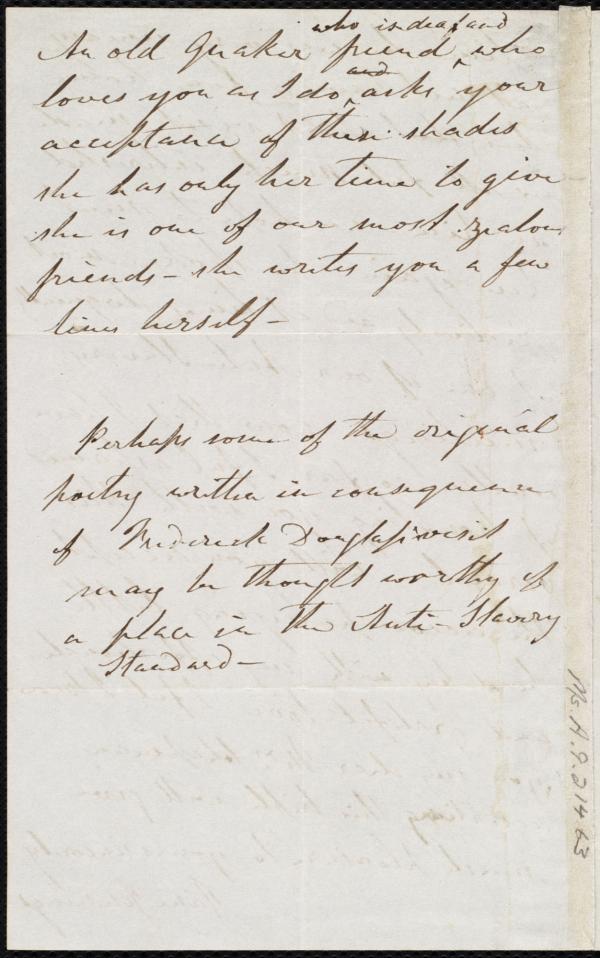 who is deaf and
An old Quaker friend ^ who
and
loves you as I do ^ asks your
acceptance of these shades
she has only her time to give
she is one of our most zealous
friends – she writes you a few
lines herself –
Perhaps some of the original
poetry written in consequence
of Frederick Douglass' visit
may be thought worthy of
a place in the Anti-Slavery
Standard –
Ms. A. 9. 2 14 63